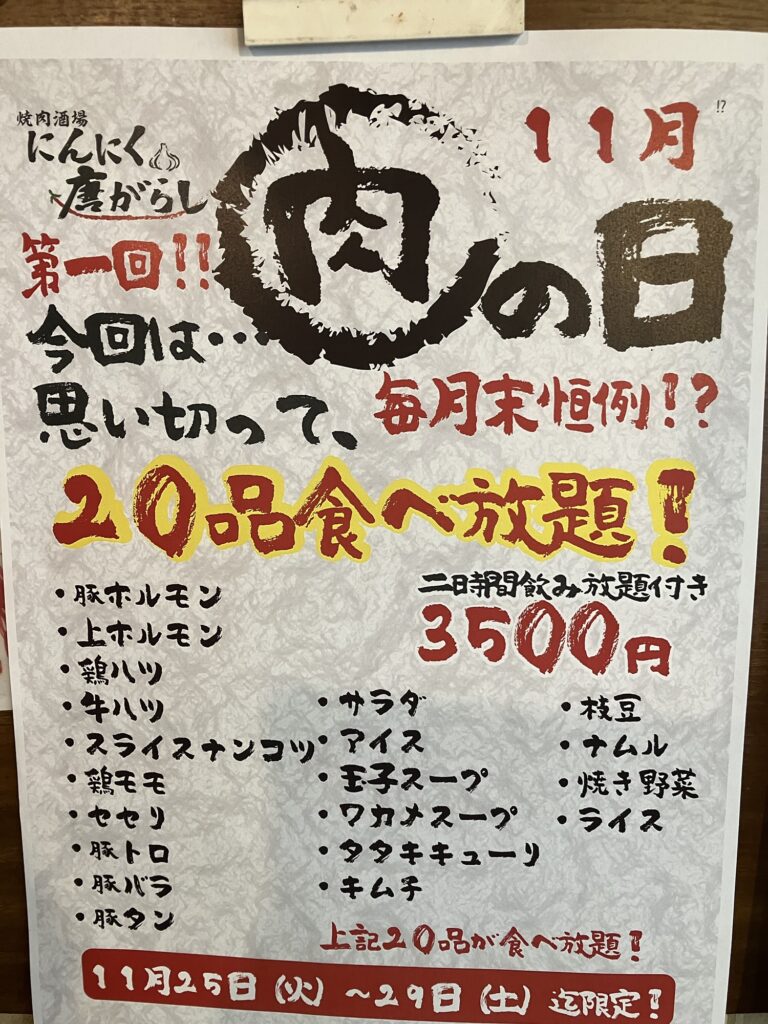 焼肉酒場
にんにく
唐がらし
11月
!?
肉の日
第一回!!
今回は…
思い切って、
毎月末恒例!?
20品食べ放題!
二時間飲み放題付き
3500円
・豚ホルモン
・上ホルモン
・鶏ハツ
・牛ハツ
・スライスナンコツ
・鶏モモ
・セセリ
・豚トロ
・豚バラ
・豚タン
・サラダ
・アイス
・玉子スープ
・ワカメスープ
・タタキキューリ
・キムチ
・枝豆
・ナムル
・焼き野菜
・ライス
上記20品が食べ放題!
11月25日(火)~29日(土)迄限定!